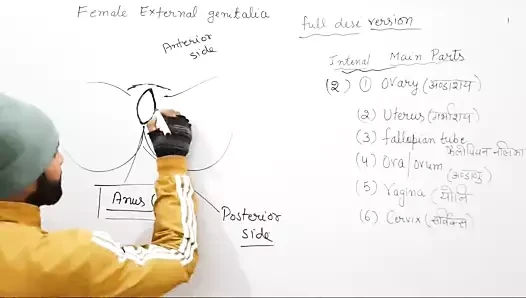 Female External genitalia
full dese version
Anterior
side
Intenal Main Parts
(2) ① Ovary (अण्डाशय)
(2) Uterus (गर्भाशय)
(3) fallopian tube
फैलोपियन नलिका
(4) Ova/ovum (अण्डाणु)
(5) Vagina (योनि)
(6) Cervix (सर्विक्स)
Anus
Posterior
side